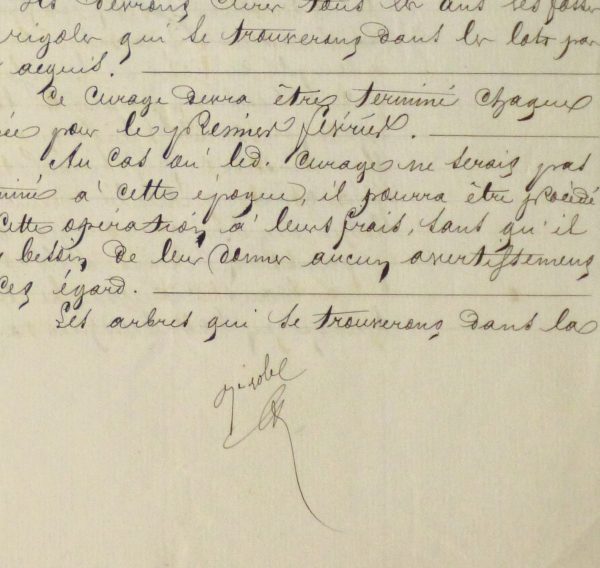 Ils devrons curer tous les ans les fossés
rigoles qui se trouverons dans les lots par
acquis.
Ce curage devra être terminé chaque
ée pour le premier février.
Au cas où led. curage ne serais pas
miné à cette époque, il pourra être procédé
cette opération à leurs frais, sans qu'il
besoin de leur donner aucun avertissement
cet égard.
Les arbres qui se trouverons dans la